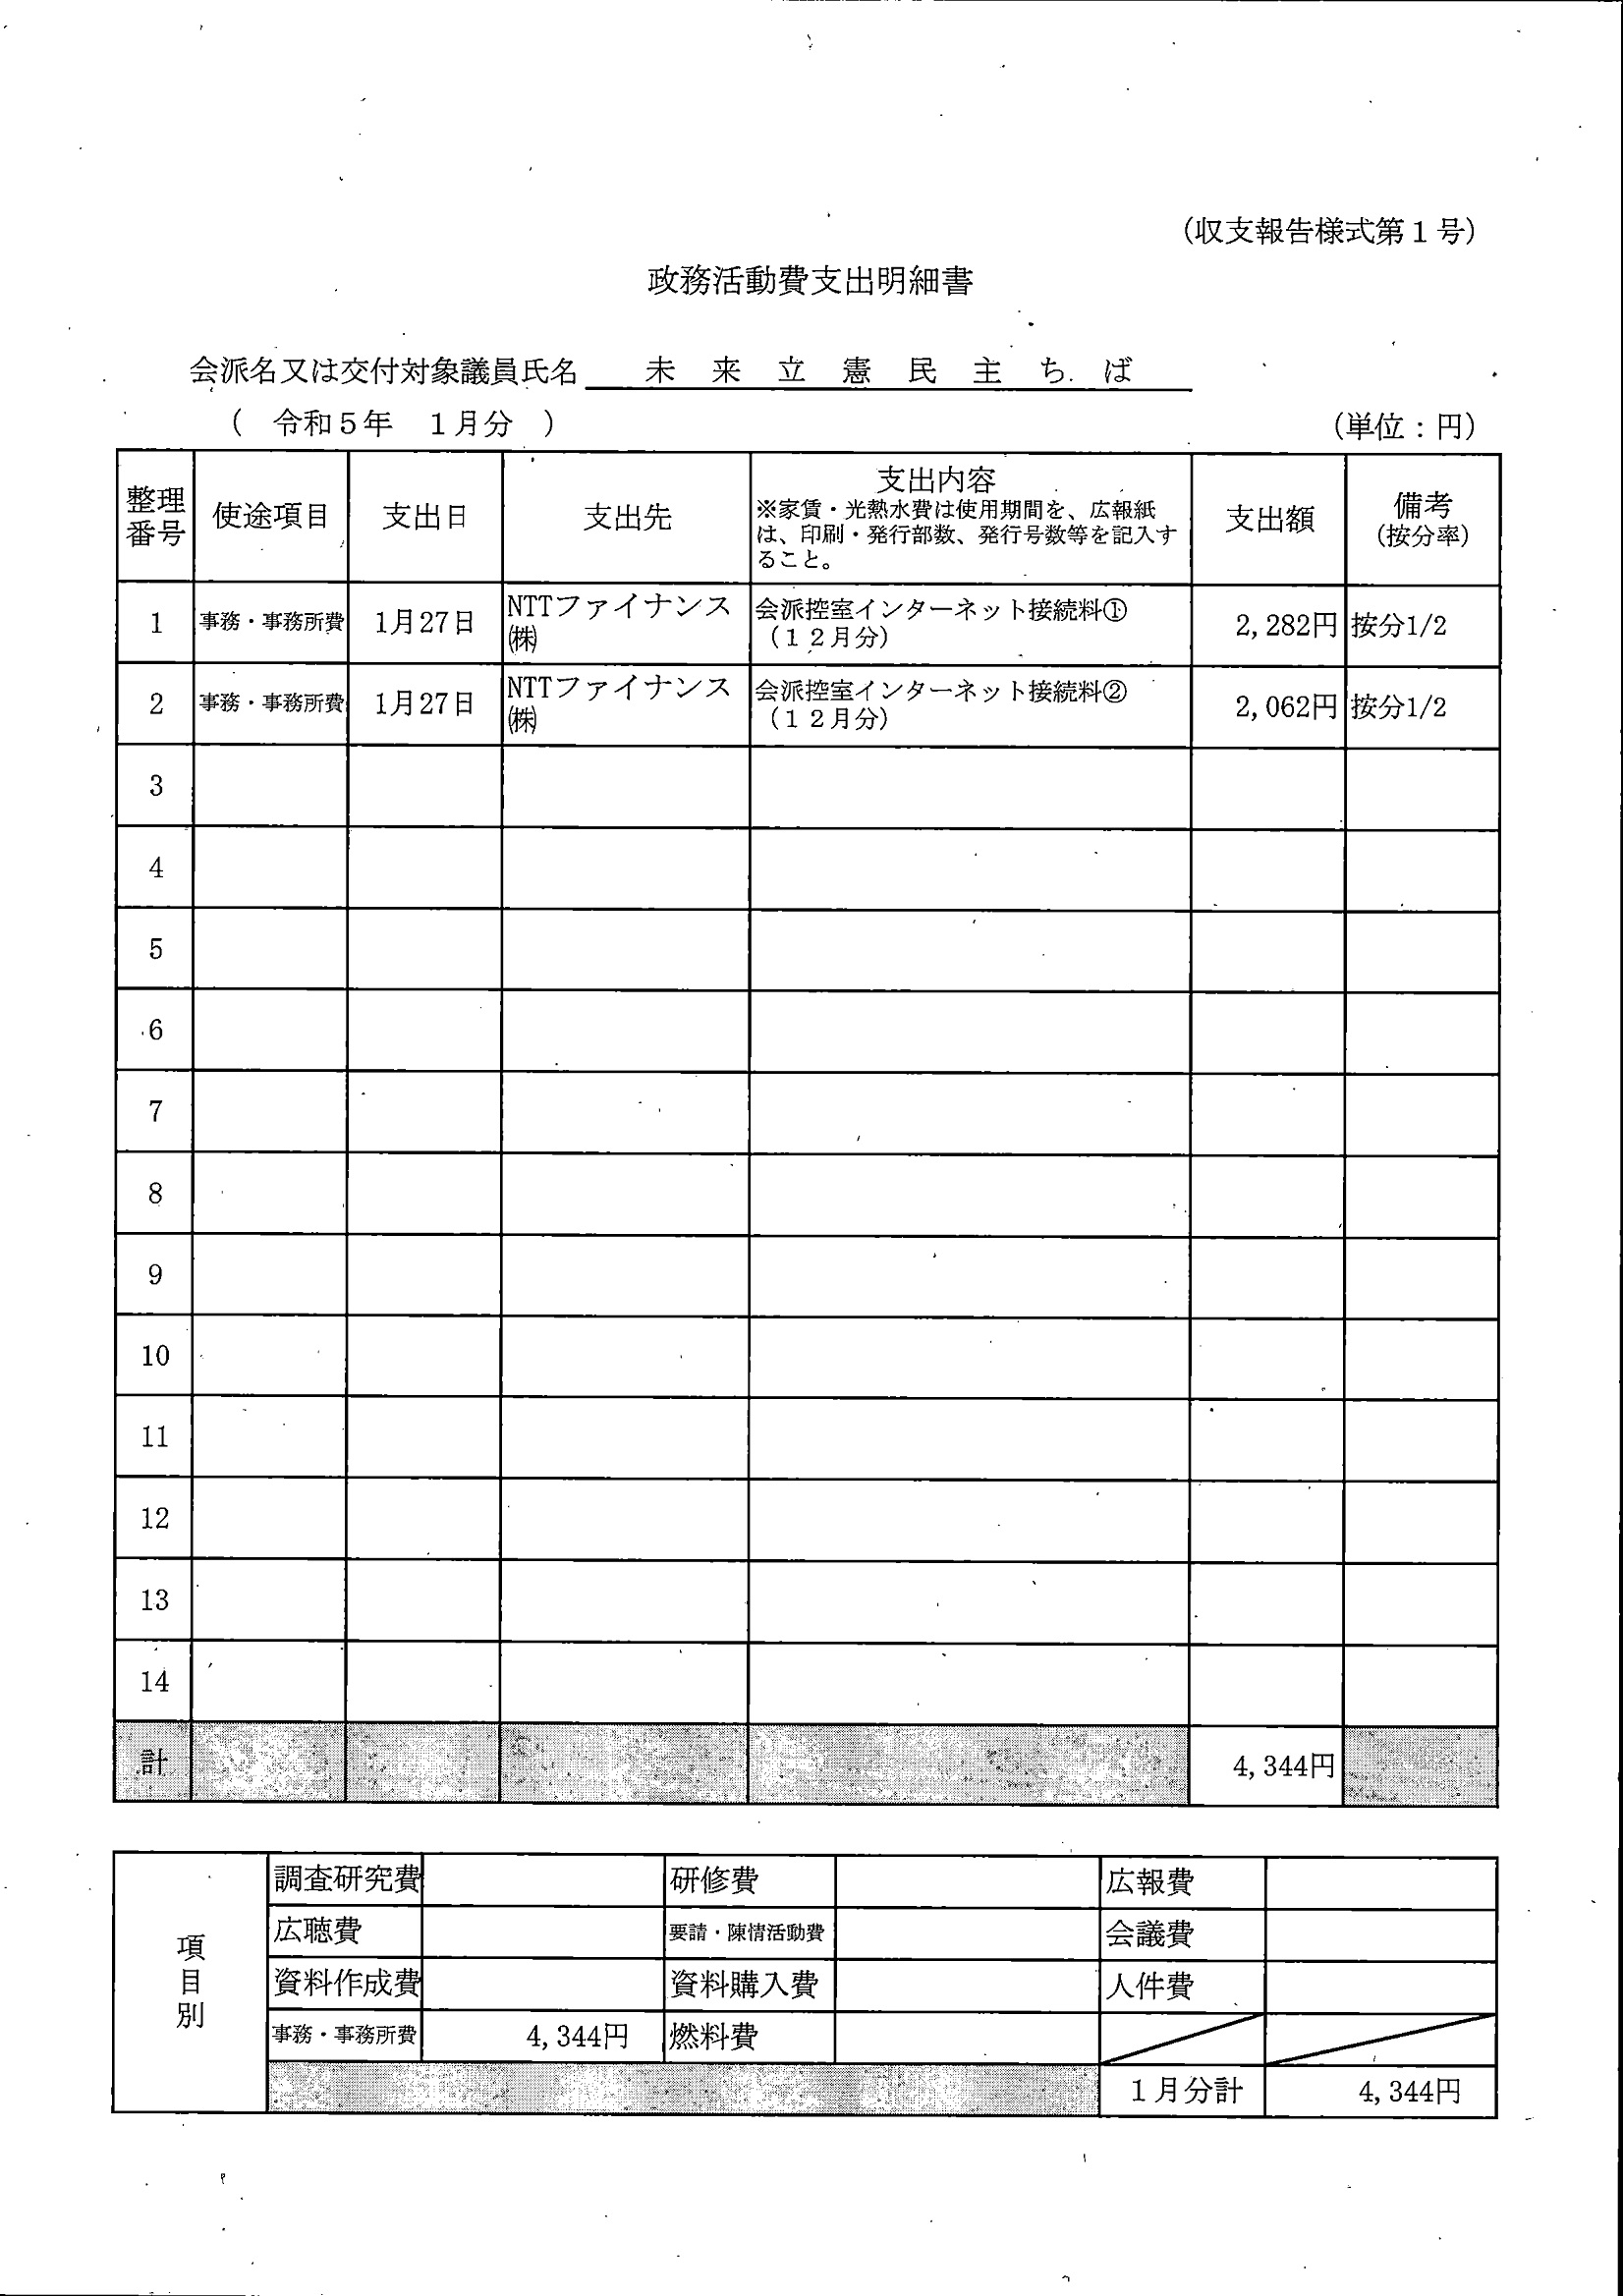 （収支報告様式第１号）
政務活動費支出明細書
会派名又は交付対象議員氏名　未 来 立 憲 民 主 ち ば
（ 令和５年　１月分 ）　（単位：円）
整理番号　使途項目　支出日　支出先　支出内容　支出額　備考（按分率）
※家賃・光熱水費は使用期間を、広報紙
は、印刷・発行部数、発行号数等を記入す
ること。
1　事務・事務所費　1月27日　NTTファイナンス㈱　会派控室インターネット接続料①（１２月分）　2,282円　按分1/2
2　事務・事務所費　1月27日　NTTファイナンス㈱　会派控室インターネット接続料②（１２月分）　2,062円　按分1/2
3
4
5
6
7
8
9
10
11
12
13
14
計　4,344円
項目別
調査研究費　研修費　広報費
広聴費　要請・陳情活動費　会議費
資料作成費　資料購入費　人件費
事務・事務所費　4,344円　燃料費
１月分計　4,344円